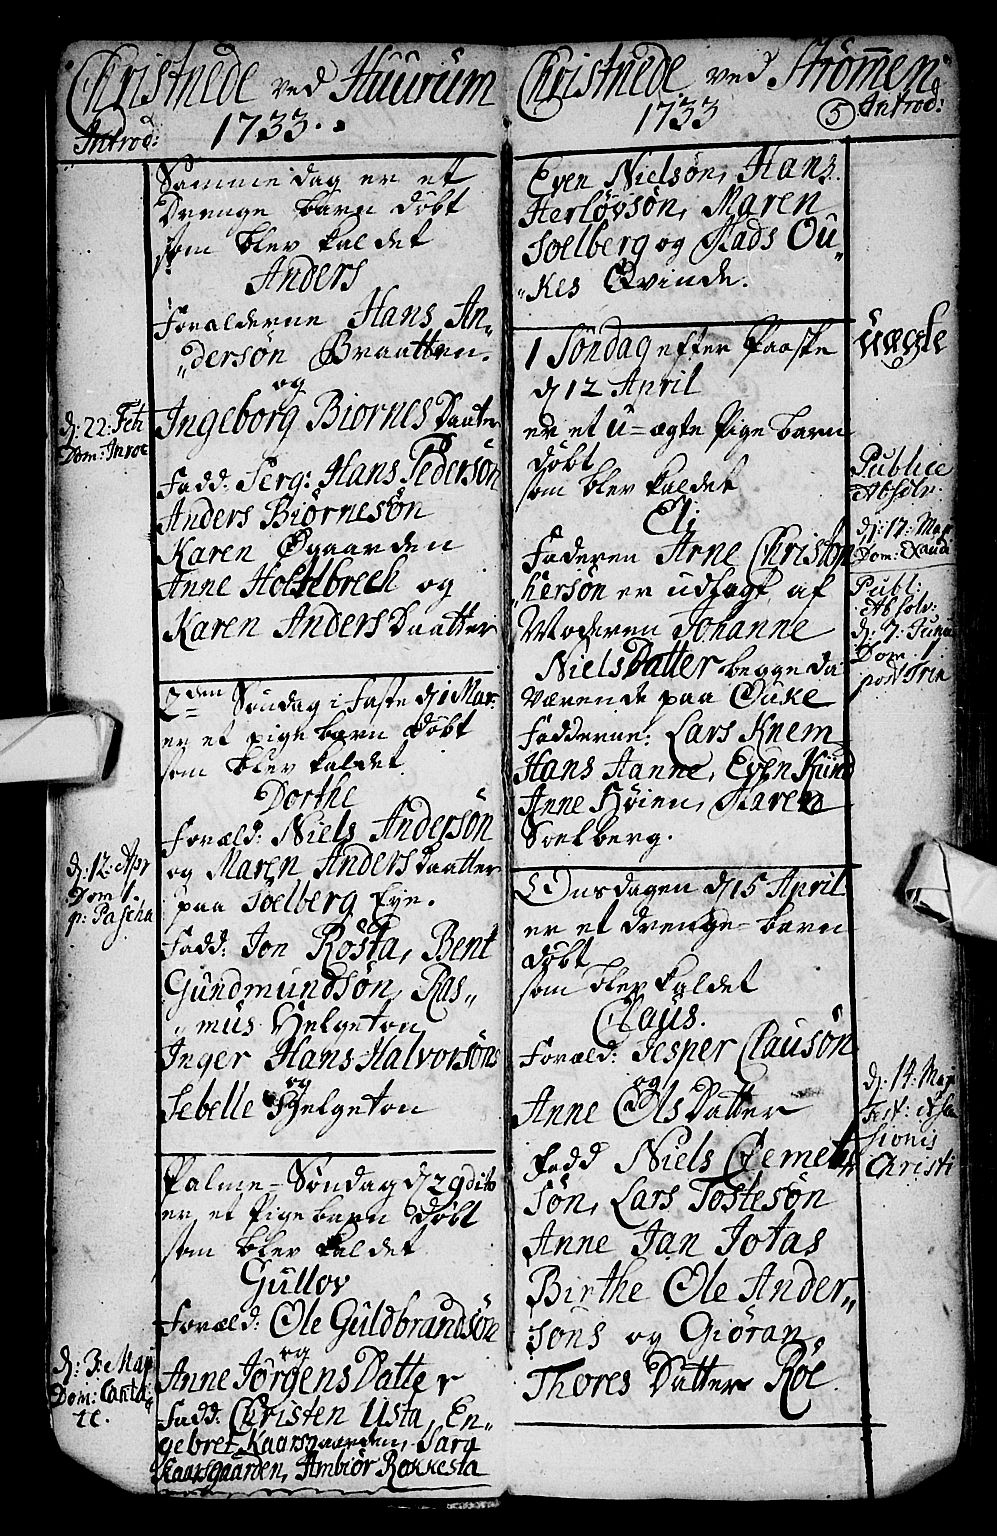 Christnede ved Huurum
1733.
Introd:
Samme dag er et
Drenge barn døbt
som blev kaldet
Anders
Forælderne Hans An-
dersøn Braatten.
og
Ingeborg Biørnes Daatter
Fadd: Serg: Hans Pedersøn
Anders Biørnesøn
Karen Øgaarden
Anne Holtebrech og
Karen Anders Daatter
d: 22: Feb
Dom: Invoc
2den Søndag i Faste d: 1 Mar:
er et pige barn døbt
som blev kaldet
Dorthe
Foræld: Niels Andersøn
og Maren Anders Daatter
paa Soelberg Eye.
Fadd: Jon Røsta, Bent
Gundmundsøn, Ras-
mus Helgeton
Inger Hans Halvorsøns
og
Sebelle Helgeton
d: 12: Apr
Dom 1.
p: Pascha
Palme-Søndag d 29 dito
er et Pige barn døbt
som blev kaldet
Gullov
Foræld: Ole Guldbrandsøn
og
Anne Jørgens Datter
Fadd: Christen Usta, En-
gebret Kaarsgaarden, Sara
Kaarsgaarden, Ambiør Rokkesta
d: 3: Maj
Dom: Canta
te.
Christnede ved Strømmen
1733
5 Introd:
Even Nielsøn, Hans
Herløvsøn, Maren
Soelberg og Mads Ou-
kes Qvinde.
1 Søndag efter Paaske
d 12 April
er et u-ægte Pige barn
døbt
som blev kaldet
Eli
Faderen Arne Christop
hersøn er udlagt af
Moderen Johanne
Niels Datter begge da
værende paa Ouke
Fadderne: Lars Knem
Hans Hanne, Even Kund
Anne Høien, Maren
Soelberg.
uægte
Publice
Absolv.
d: 17: Maj
Dom: Exaudi
Publ:
Absolv:
d: 7: Junii
Dom 1.
post Trin
Onsdagen d 15 April
er et drenge-barn
døbt
som blev kaldet
Claus.
Foræld: Jesper Clausøn
og
Anne Ols Datter
Fadd Niels Clemet
søn, Lars Tostesøn
Anne Jan Jotas
Birthe Ole Ander-
søns og Giøran
Thores Datter Röe
d: 14: Maj
Fest: Asce
sionis
Christi